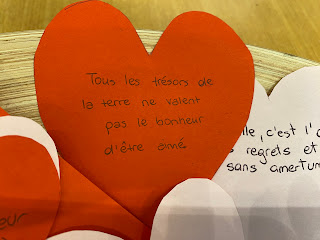 Tous les trésors de
la terre ne valent
pas le bonheur
d'être aimé
c'est l'
regrets et
sans amertum
eur